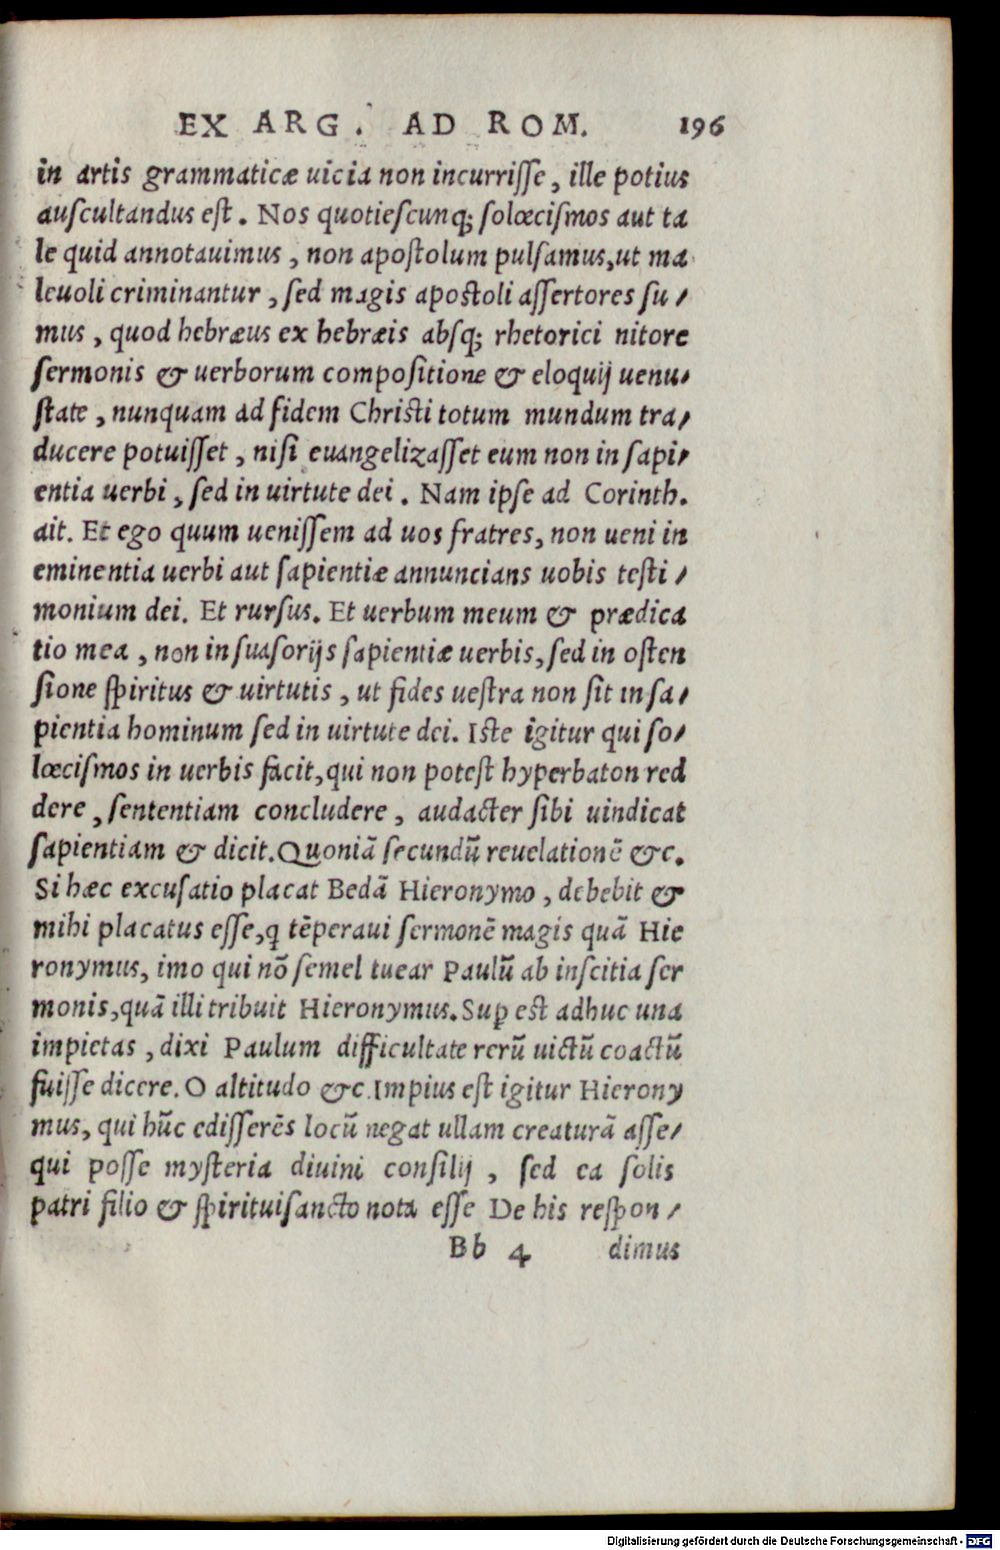 EX ARG. AD ROM. 196
in artis grammaticæ uicia non incurrisſe, ille potius
auſcultandus eſt. Nos quotieſcunq; ſolœciſmos aut ta
le quid annotauimus, non apoſtolum pulſamus,ut ma
leuoli criminantur, ſed magis apoſtoli aſſertores ſu/
mus, quod hebræus ex hebræis abſq; rhetorici nitore
ſermonis & uerborum compoſitione & eloquij uenu/
ſtate, nunquam ad fidem Chriſti totum mundum tra/
ducere potuiſſet, niſi euangelizaſſet eum non in ſapi/
entia uerbi, ſed in uirtute dei. Nam ipſe ad Corinth.
ait. Et ego quum ueniſſem ad uos fratres, non ueni in
eminentia uerbi aut ſapientiæ annuncians uobis teſti/
monium dei. Et rurſus. Et uerbum meum & prædica
tio mea, non in ſuaſorijs ſapientiæ uerbis, ſed in oſten
ſione ſpiritus & uirtutis, ut fides ueſtra non ſit in ſa/
pientia hominum ſed in uirtute dei. Iſte igitur qui ſo/
lœciſmos in uerbis facit,qui non poteſt hyperbaton red
dere, ſententiam concludere, audacter ſibi uindicat
ſapientiam & dicit.Quoniã ſecundũ reuelationẽ &c.
Si hæc excuſatio placat Bedã Hieronymo, debebit &
mihi placatus eſſe,q tẽperaui ſermonẽ magis quã Hie
ronymus, imo qui nõ ſemel tuear Paulũ ab inſcitia ſer
monis,quã illi tribuit Hieronymus.Suꝑ eſt adhuc una
impietas, dixi Paulum difficultate rerũ uictũ coactũ
fuiſſe dicere. O altitudo &c.Impius eſt igitur Hierony
mus, qui hũc ediſſerẽs locũ negat ullam creaturã aſſe/
qui poſſe myſteria diuini conſilij, ſed ea ſolis
patri filio & ſpirituiſancto nota eſſe De his reſpon/
Bb 4 dimus
Digitalisierung gefördert durch die Deutsche Forschungsgemeinschaft - DFG